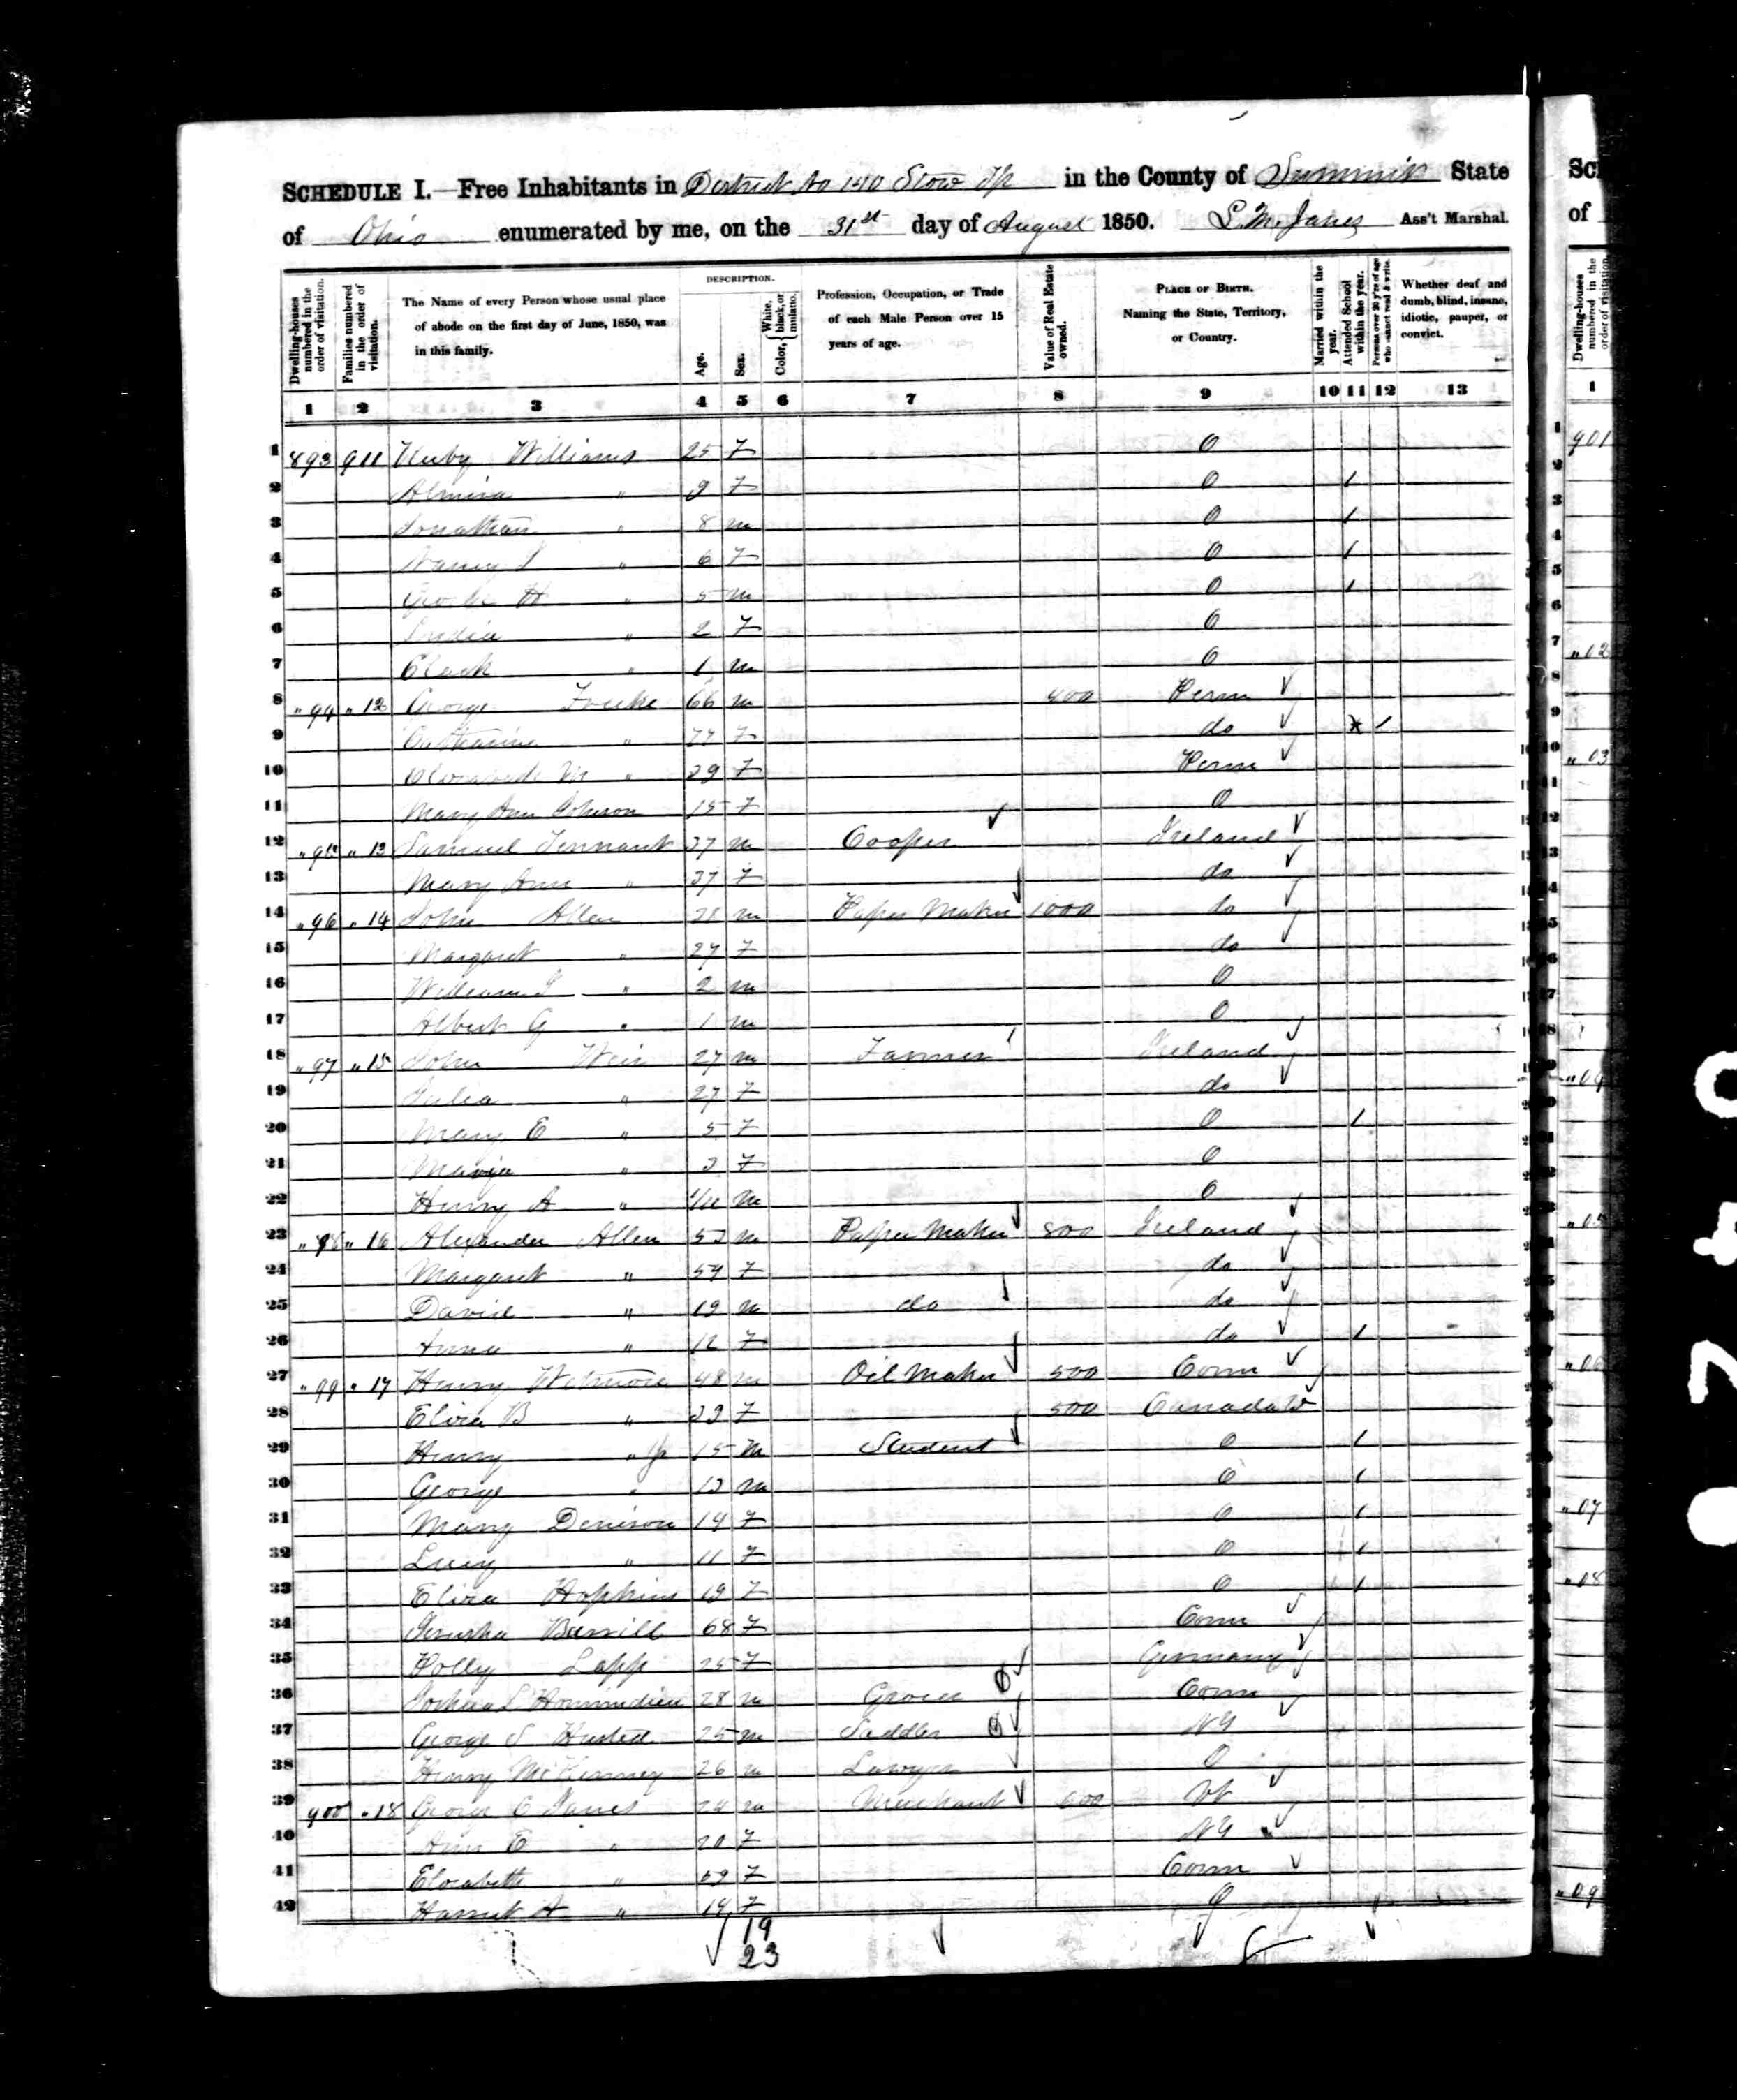 SCHEDULE I.—Free Inhabitants in District No 140 Stow Tp in the County of Summit State
of Ohio enumerated by me, on the 31st day of August 1850. Ass't Marshal.
Dwelling-houses numbered in the order of visitation.
Families numbered in the order of visitation.
The Name of every Person whose usual place of abode on the first day of June, 1850, was in this family.
DESCRIPTION.
Age.
Sex.
Color, { White, black, or mulatto.
Profession, Occupation, or Trade of each Male Person over 15 years of age.
Value of Real Estate owned.
PLACE OF BIRTH. Naming the State, Territory, or Country.
Married within the year.
Attended School within the year.
Persons over 20 y'rs of age who cannot read & write.
Whether deaf and dumb, blind, insane, idiotic, pauper, or convict.
1 2 3 4 5 6 7 8 9 10 11 12 13
1 893 911 Williams 25 F O
2 Almira " 9 F O 1
3 Jonathan " 8 m O 1
4 Nancy " 6 F O 1
5 H " 5 m O 1
6 " 2 F O
7 Clark " 1 m O
8 " 94 " 12 George 66 m 400 Penn
9 Catharine " F do 1
10 M " 39 F Penn
11 Mary Ann Johnson 15 F O
12 " 95 " 13 Samuel Tennant 37 m Cooper Ireland
13 Mary Ann " 37 F do
14 " 96 " 14 John Allen m Paper Maker 1000 do
15 Margaret " 27 F do
16 William " 2 m O
17 Albert G " 1 m O
18 " 97 " 15 John Weir 27 m Farmer Ireland
19 Julia " 27 F do
20 Mary E " 5 F O 1
21 " 3 F O
22 Henry A " m O
23 " 98 " 16 Alexander Allen 53 m Paper Maker 800 Ireland
24 Margaret " 54 F do
25 David " 19 m do do
26 Anna " 12 F do 1
27 " 99 " 17 Henry Wetmore 48 m Oil Maker 500 Conn
28 Eliza B " 39 F 500 Canada W
29 Henry " Jr 15 m Student O 1
30 George " 13 m O 1
31 Mary Denison 14 F O 1
32 Lucy " 11 F O 1
33 Eliza Hopkins 19 F O 1
34 Jerusha 68 F Conn
35 Polly Lapp 25 F Germany
36 L'Hommedieu 28 m Grocer Conn
37 George S Husted 25 m Saddler NY
38 Henry McKinney 26 m Lawyer O
39 900 " 18 George E Janes m Merchant 600 Vt
40 Ann E " 20 F NY
41 Elizabeth " 59 F Conn
42 Harriet A " 14 F O
19
23
Sc
of
Dwelling-houses numbered in the order of visitation.
1
901
" 02
" 03
" 04
" 05
" 06
" 07
" 08
" 09